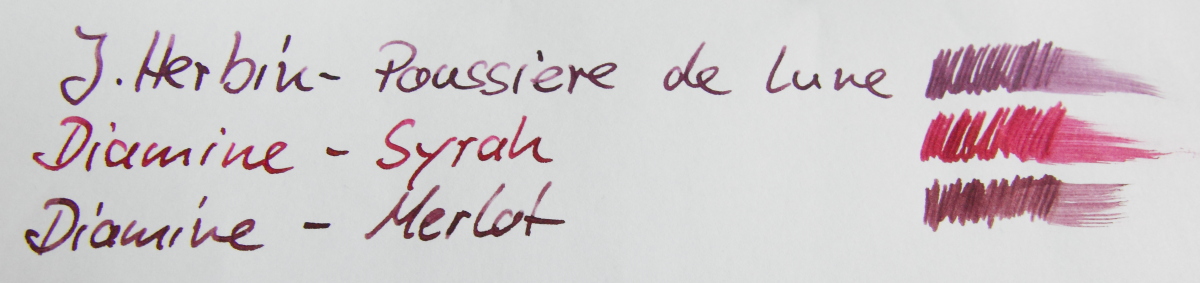 J. Herbin - Poussiere de Lune
Diamine - Syrah
Diamine - Merlot